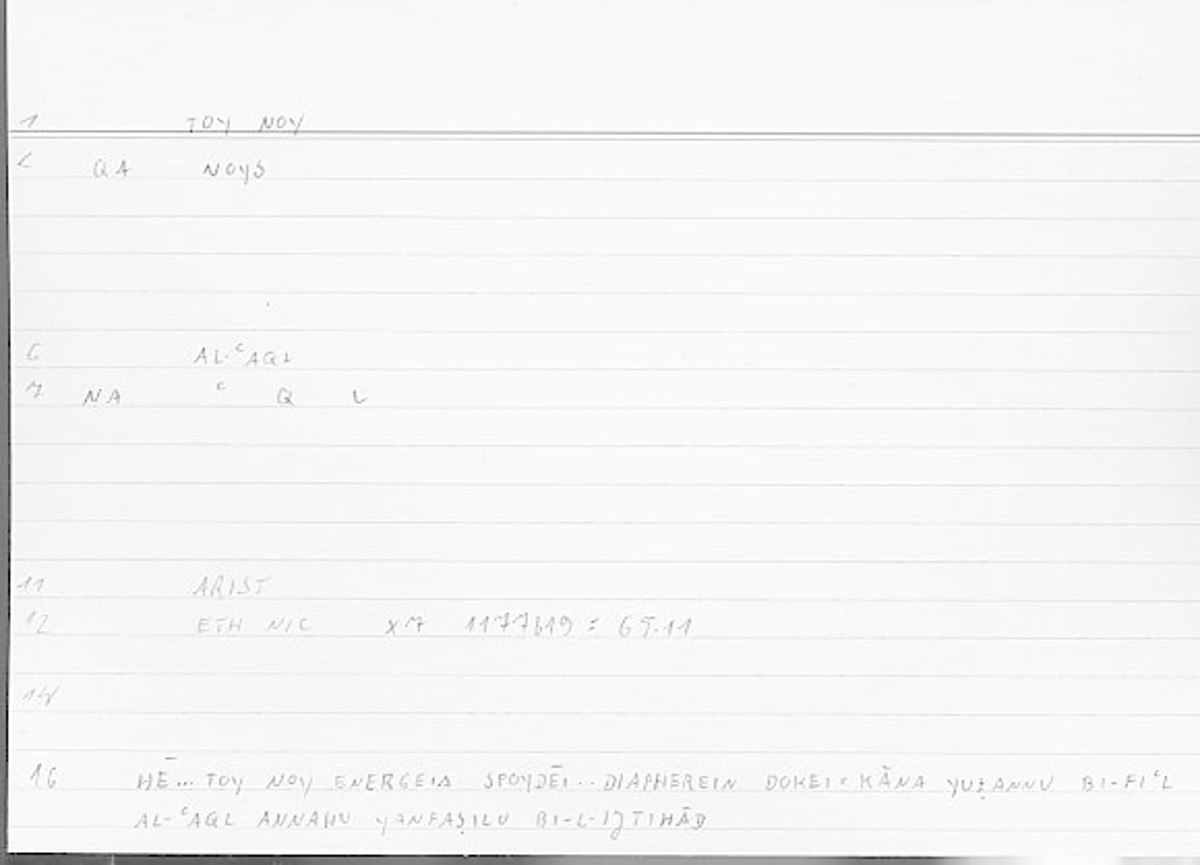 1 TOY NOY
2 QA NOYS
6 AL-ʿAQL
7 NA ʿ Q L
11 ARIST
12 ETH NIC X7 1177b19 = 65.11
14
16 HĒ... TOY NOY ENERGEIA SPOYDĒI.. DIAPHEREIN DOKEI = KĀNA YUẒANNU BI-FIʿL
AL-ʿAQL ANNAHU YANFAṢILU BI-L-IǦTIHĀD